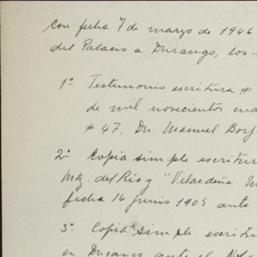 con fecha 7 de marzo de 1946
del Palacio a Durango, los
1º Testimonio escritura #
de mil novecientos
# 47, Dn. Manuel
2º Copia simple escritura
Mtz. del Río y "Velardeña
fecha 16 junio 1905 ante
3º Copia simple
en Durango ante el